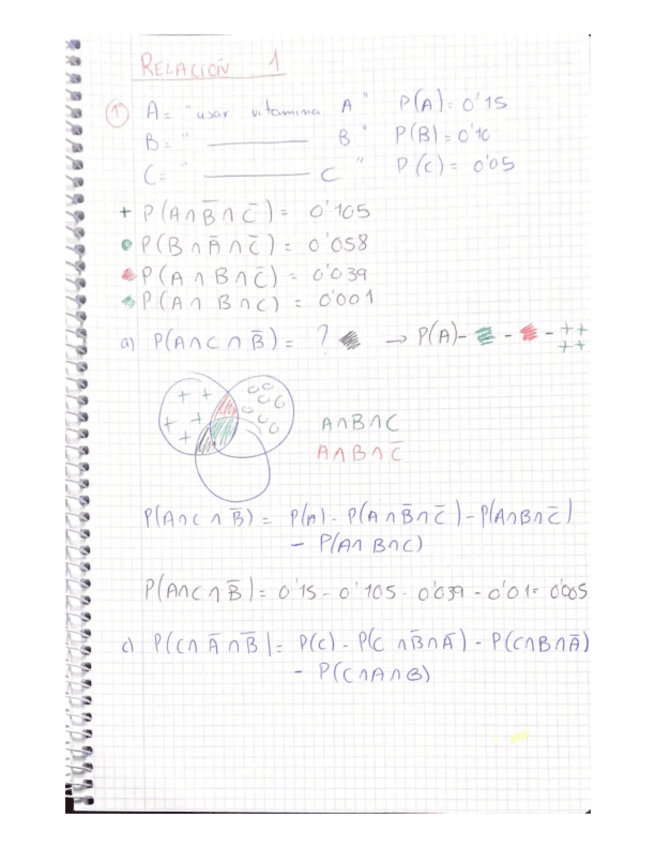 RELACIÓN 1
1º A = "usar vitamina A" P(A) = 0'15
B = " ——— B" P(B) = 0'10
C = " ——— C" P(C) = 0'05
+ P(A∩B̅∩C̅) = 0'105
P(B∩A̅∩C̅) = 0'058
P(A∩B∩C̅) = 0'039
P(A∩B∩C) = 0'001
a) P(A∩C∩B̅) = ? → P(A) - - - ++
++
+ +
+ +
+
A∩B∩C
A∩B∩C̅
P(A∩C∩B̅) = P(A) - P(A∩B̅∩C̅) - P(A∩B∩C̅)
- P(A∩B∩C)
P(A∩C∩B̅) = 0'15 - 0'105 - 0'039 - 0'01 = 0'005
c) P(C∩A̅∩B̅) = P(C) - P(C∩B̅∩A) - P(C∩B∩A̅)
- P(C∩A∩B)